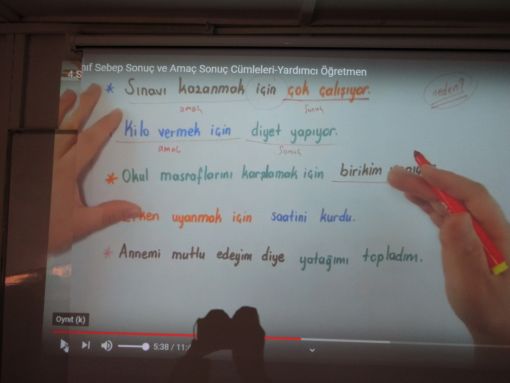 nıf Sebep Sonuç ve Amaç Sonuç Cümleleri-Yardımcı Öğretmen
4.S
* Sınavı kazanmak için çok çalışıyor.
neden?
amaç sonuç
Kilo vermek için diyet yapıyor.
amaç sonuç
* Okul masraflarını karşılamak için birikim
Erken uyanmak için saatini kurdu.
* Annemi mutlu edeyim diye yatağımı topladım.
Oynıt (k)
5:38 / 11: